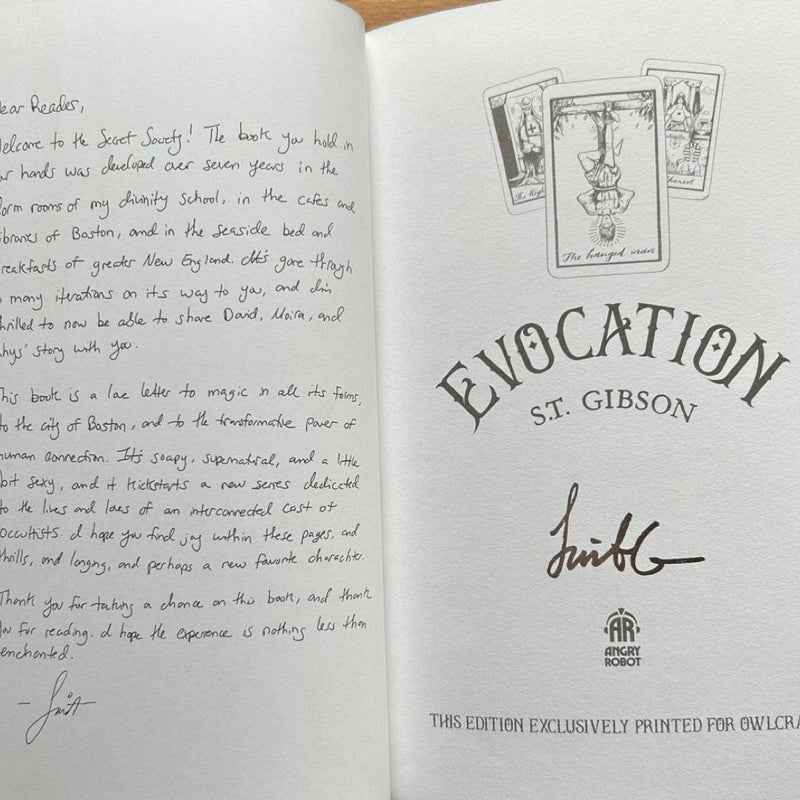 ear Reader,
elcome to the Secret Society! The book you hold in
ur hands was developed over seven years in the
orm rooms of my divinity school, in the cafes and
ibraries of Boston, and in the seaside bed and
reakfasts of greater New England. It's gone through
o many iterations on its way to you, and I'm
hrilled to now be able to share David, Moira, and
hys' story with you.
his book is a love letter to magic in all its forms,
to the city of Boston, and to the transformative power of
human connection. It's soapy, supernatural, and a little
bit sexy, and it kickstarts a new series dedicated
to the lives and loves of an interconnected cast of
occultists. I hope you find joy within these pages, and
thrills, and longing, and perhaps a new favorite character.
Thank you for taking a chance on this book, and thank
you for reading. I hope the experience is nothing less than
enchanted.
The High
The hanged man
hariot
EVOCATION
S.T. GIBSON
AR
ANGRY
ROBOT
THIS EDITION EXCLUSIVELY PRINTED FOR OWLCRA